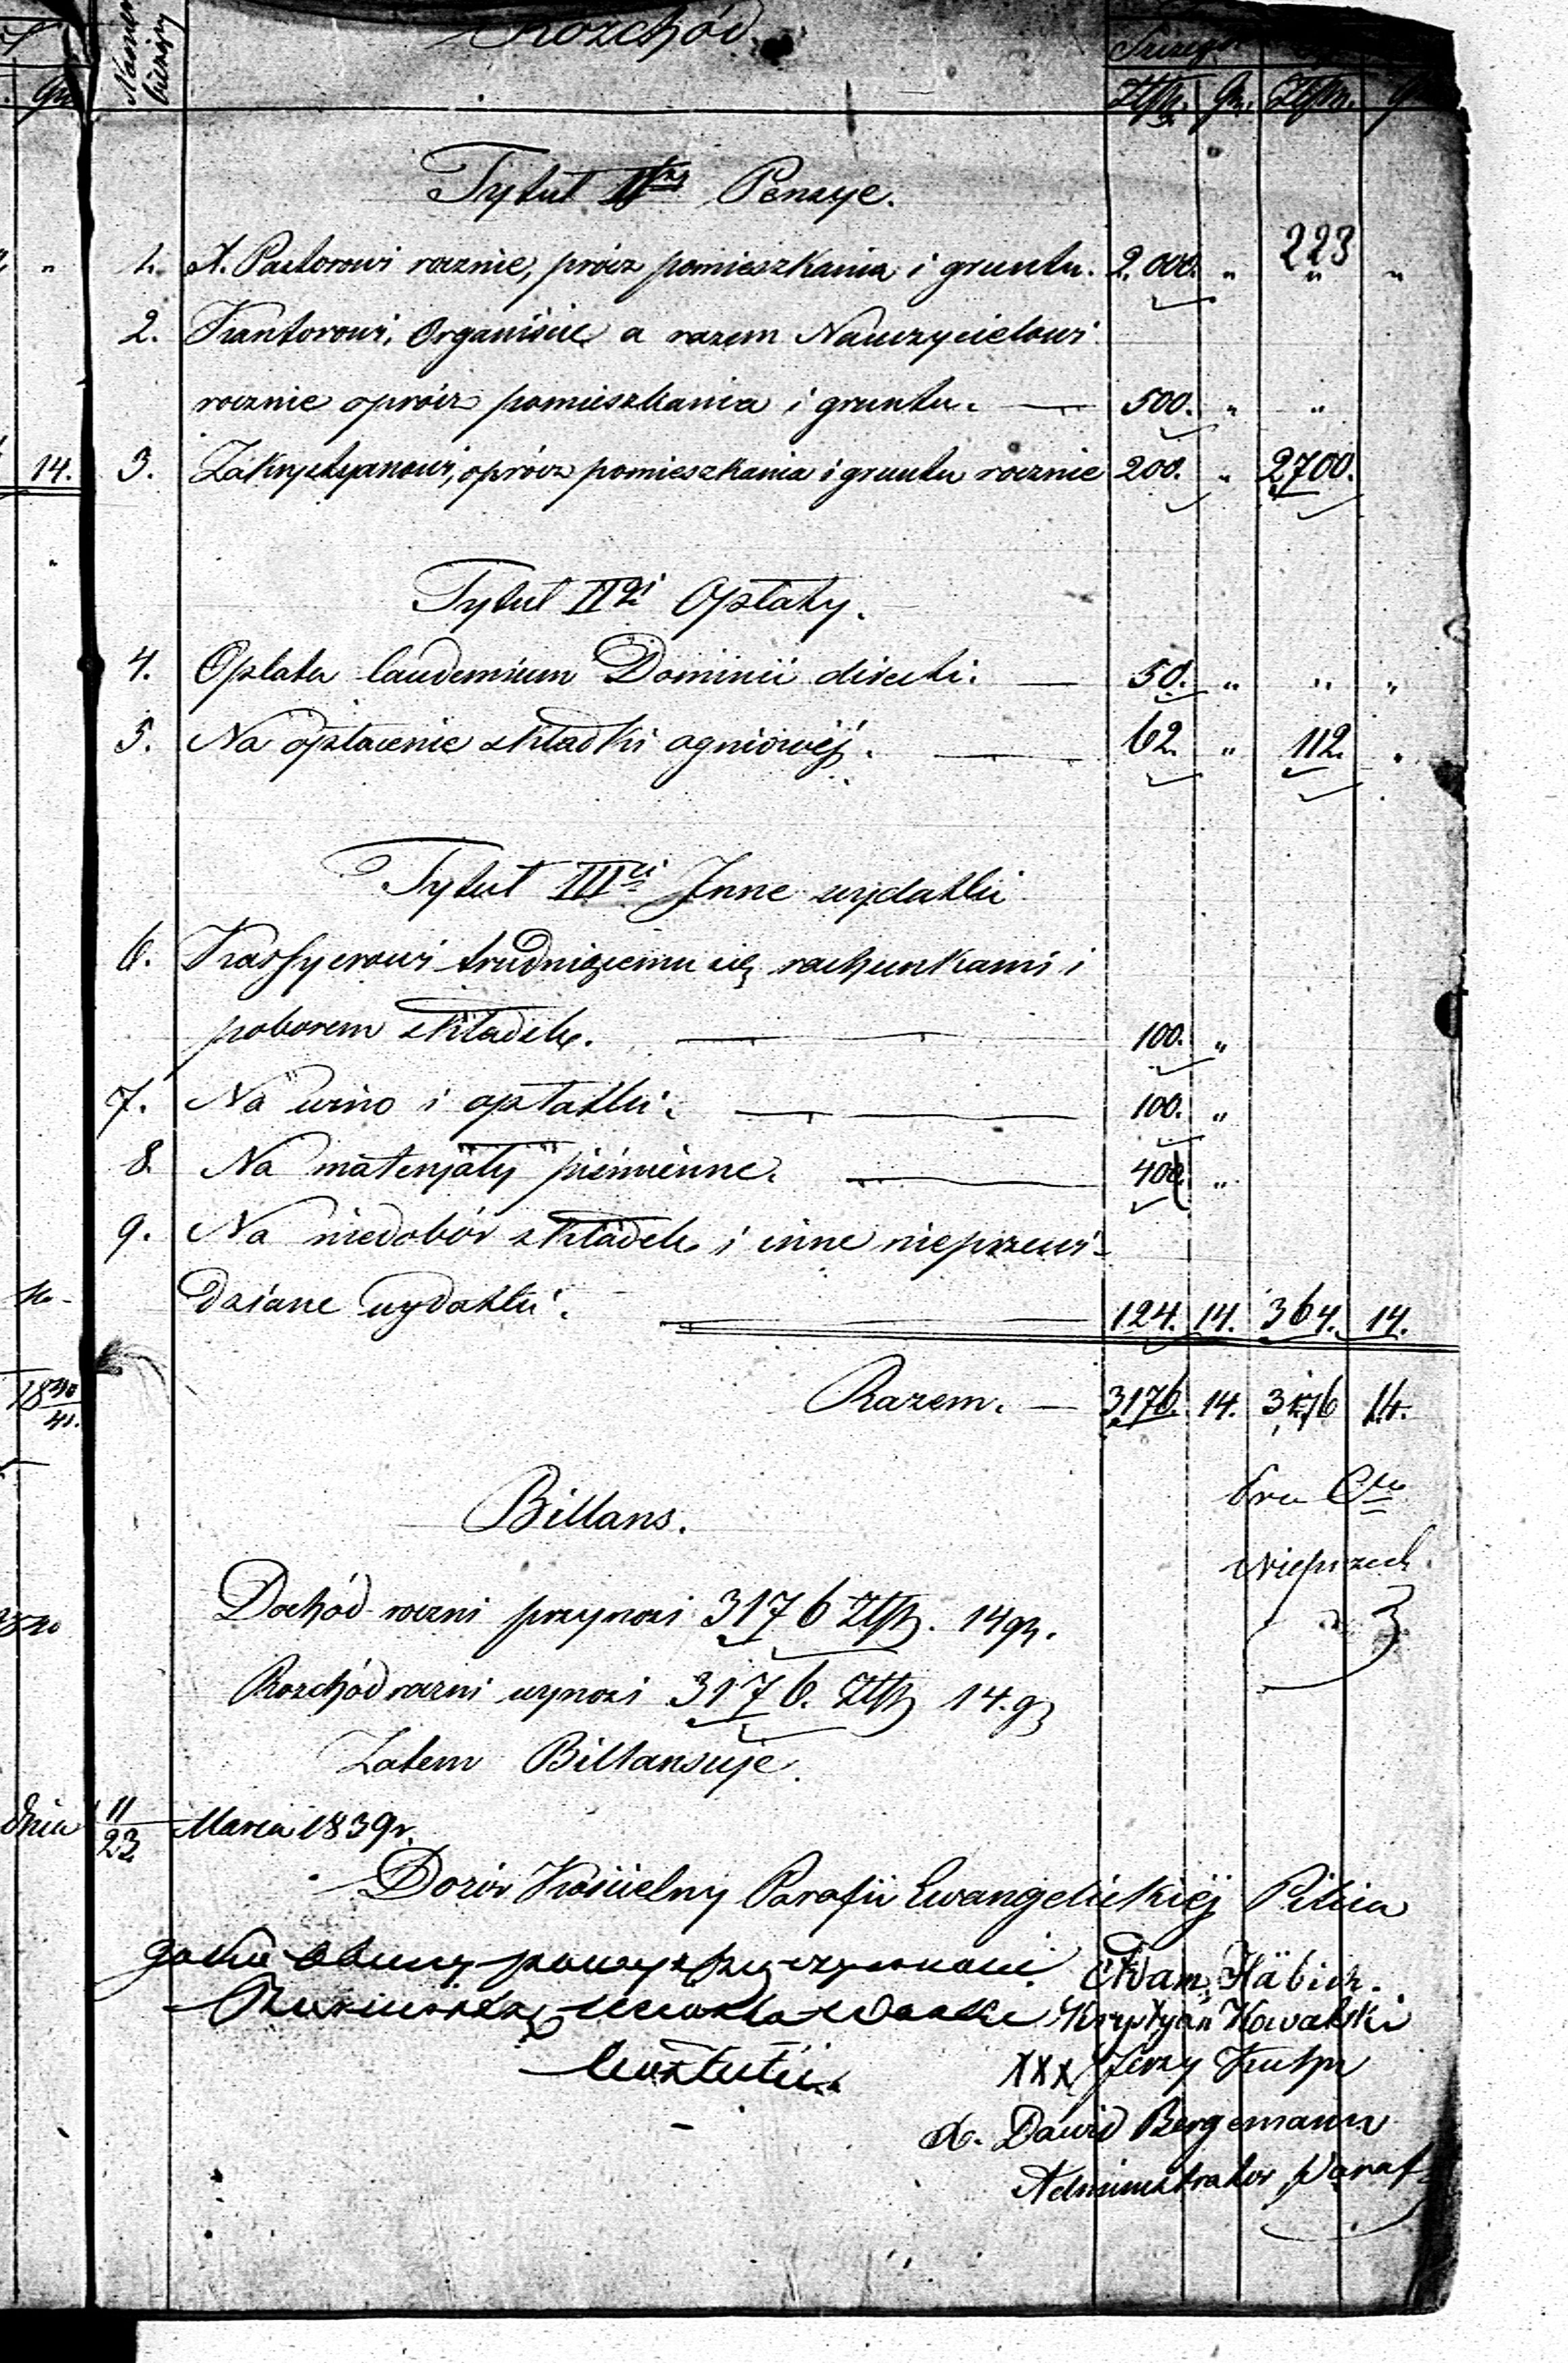 Rozchód
Numer bieżący
Złp. gr. Złp. gr.
Tytuł Iszy Pensye.
223
1. X. Pastorowi rocznie, prócz pomieszkania i gruntu. 2,000. " " "
2. Kantorowi, Organiście, a razem Nauczycielowi
rocznie oprócz pomieszkania i gruntu. — 500. " "
14. 3. Zakrystyanowi, oprócz pomieszkania i gruntu rocznie 200. " 2700.
Tytuł IIgi Opłaty.
4. Opłata laudemium Dominii directi. — 50. " " "
5. Na opłacenie składki ogniowéj. — 62. " 112. "
Tytuł IIIci Inne wydatki
6. Kassyerowi trudniącemu się rachunkami i
poborem składek. — — 100. "
7. Na wino i opłatki. — — 100. "
8. Na materjały piśmienne. — 40 "
9. Na niedobór składek i inne nieprzewi-
dziane wydatki. — — 124. 14. 364. 14.
1840/41.
Razem. — 3176. 14. 3176 14.
Billans.
Dochód roczni przynosi 3176 Złp. 14 gr.
Rozchód roczni wynosi 3176. Złp 14. gr
Zatem Billansuje.
dnia 11/23 Marca 1839 r.
Dozór Kościelny Parafii Ewangelickiéj Pilica
Adam Häbich.
Krystyan Kowalski
XXX Jerzy
X. Dawid Bergemann
Administrator Paraf